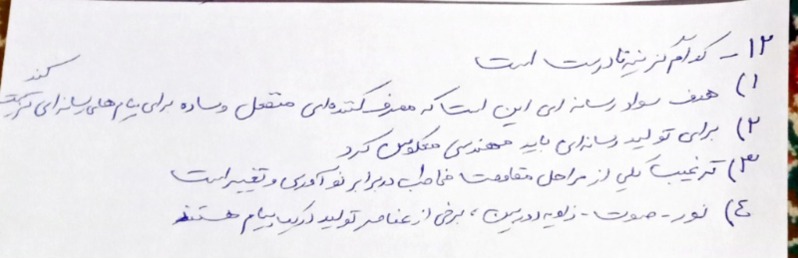 ۱۲ - کدام گزینه نادرست است
۱) هدف سواد رسانه ای این است که مصرف کننده‌ای منفعل و ساده برای پیام های رسانه ای تربیت کند
۲) برای تولید رسانه‌ای باید مهندسی معکوس کرد
۳) ترغیب یکی از مراحل مقاومت مخاطب در برابر نوآوری و تغییر است
۴) نور - صوت - زاویه دوربین، برخی از عناصر تولید در یک پیام هستند